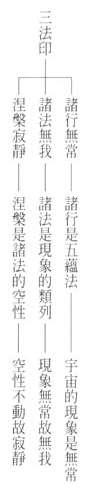 三法印
諸行無常——諸行是五蘊法——宇宙的現象是無常
諸法無我——諸法是現象的類列——現象無常故無我
涅槃寂靜——涅槃是諸法的空性——空性不動故寂靜